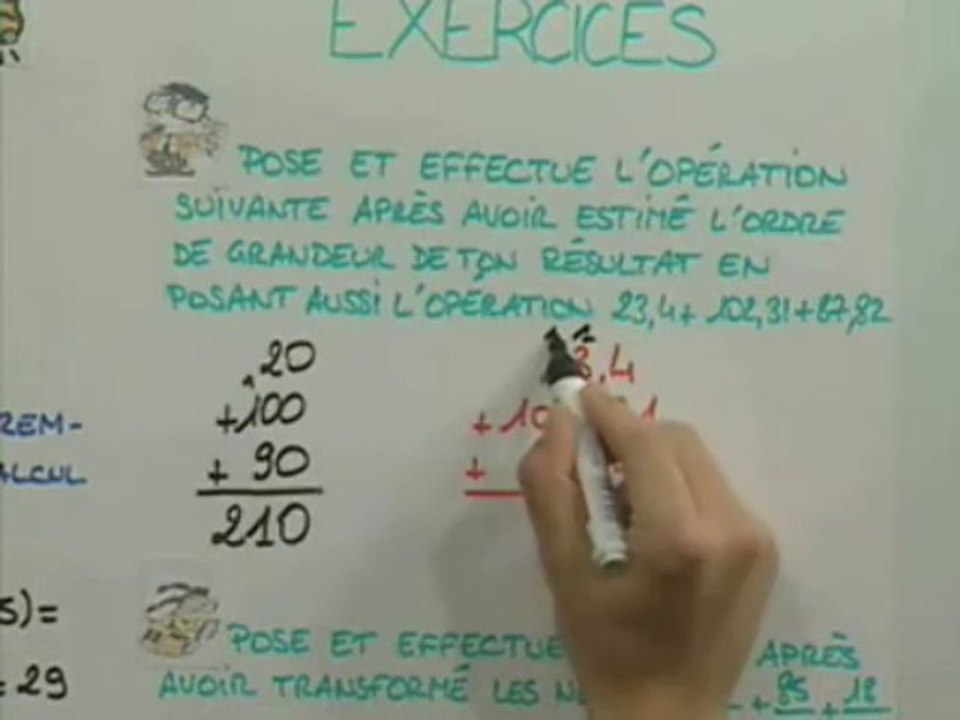 EXERCICES
POSE ET EFFECTUE L'OPÉRATION
SUIVANTE APRÈS AVOIR ESTIMÉ L'ORDRE
DE GRANDEUR DE TON RÉSULTAT EN
POSANT AUSSI L'OPÉRATION 23,4+ 102,31+87,82
20
+100
+ 90
210
3,4
+ 10 1
+
REM-
ALCUL
S)=
= 29
POSE ET EFFECTUE APRÈS
AVOIR TRANSFORMÉ LES
+ 85 + 18